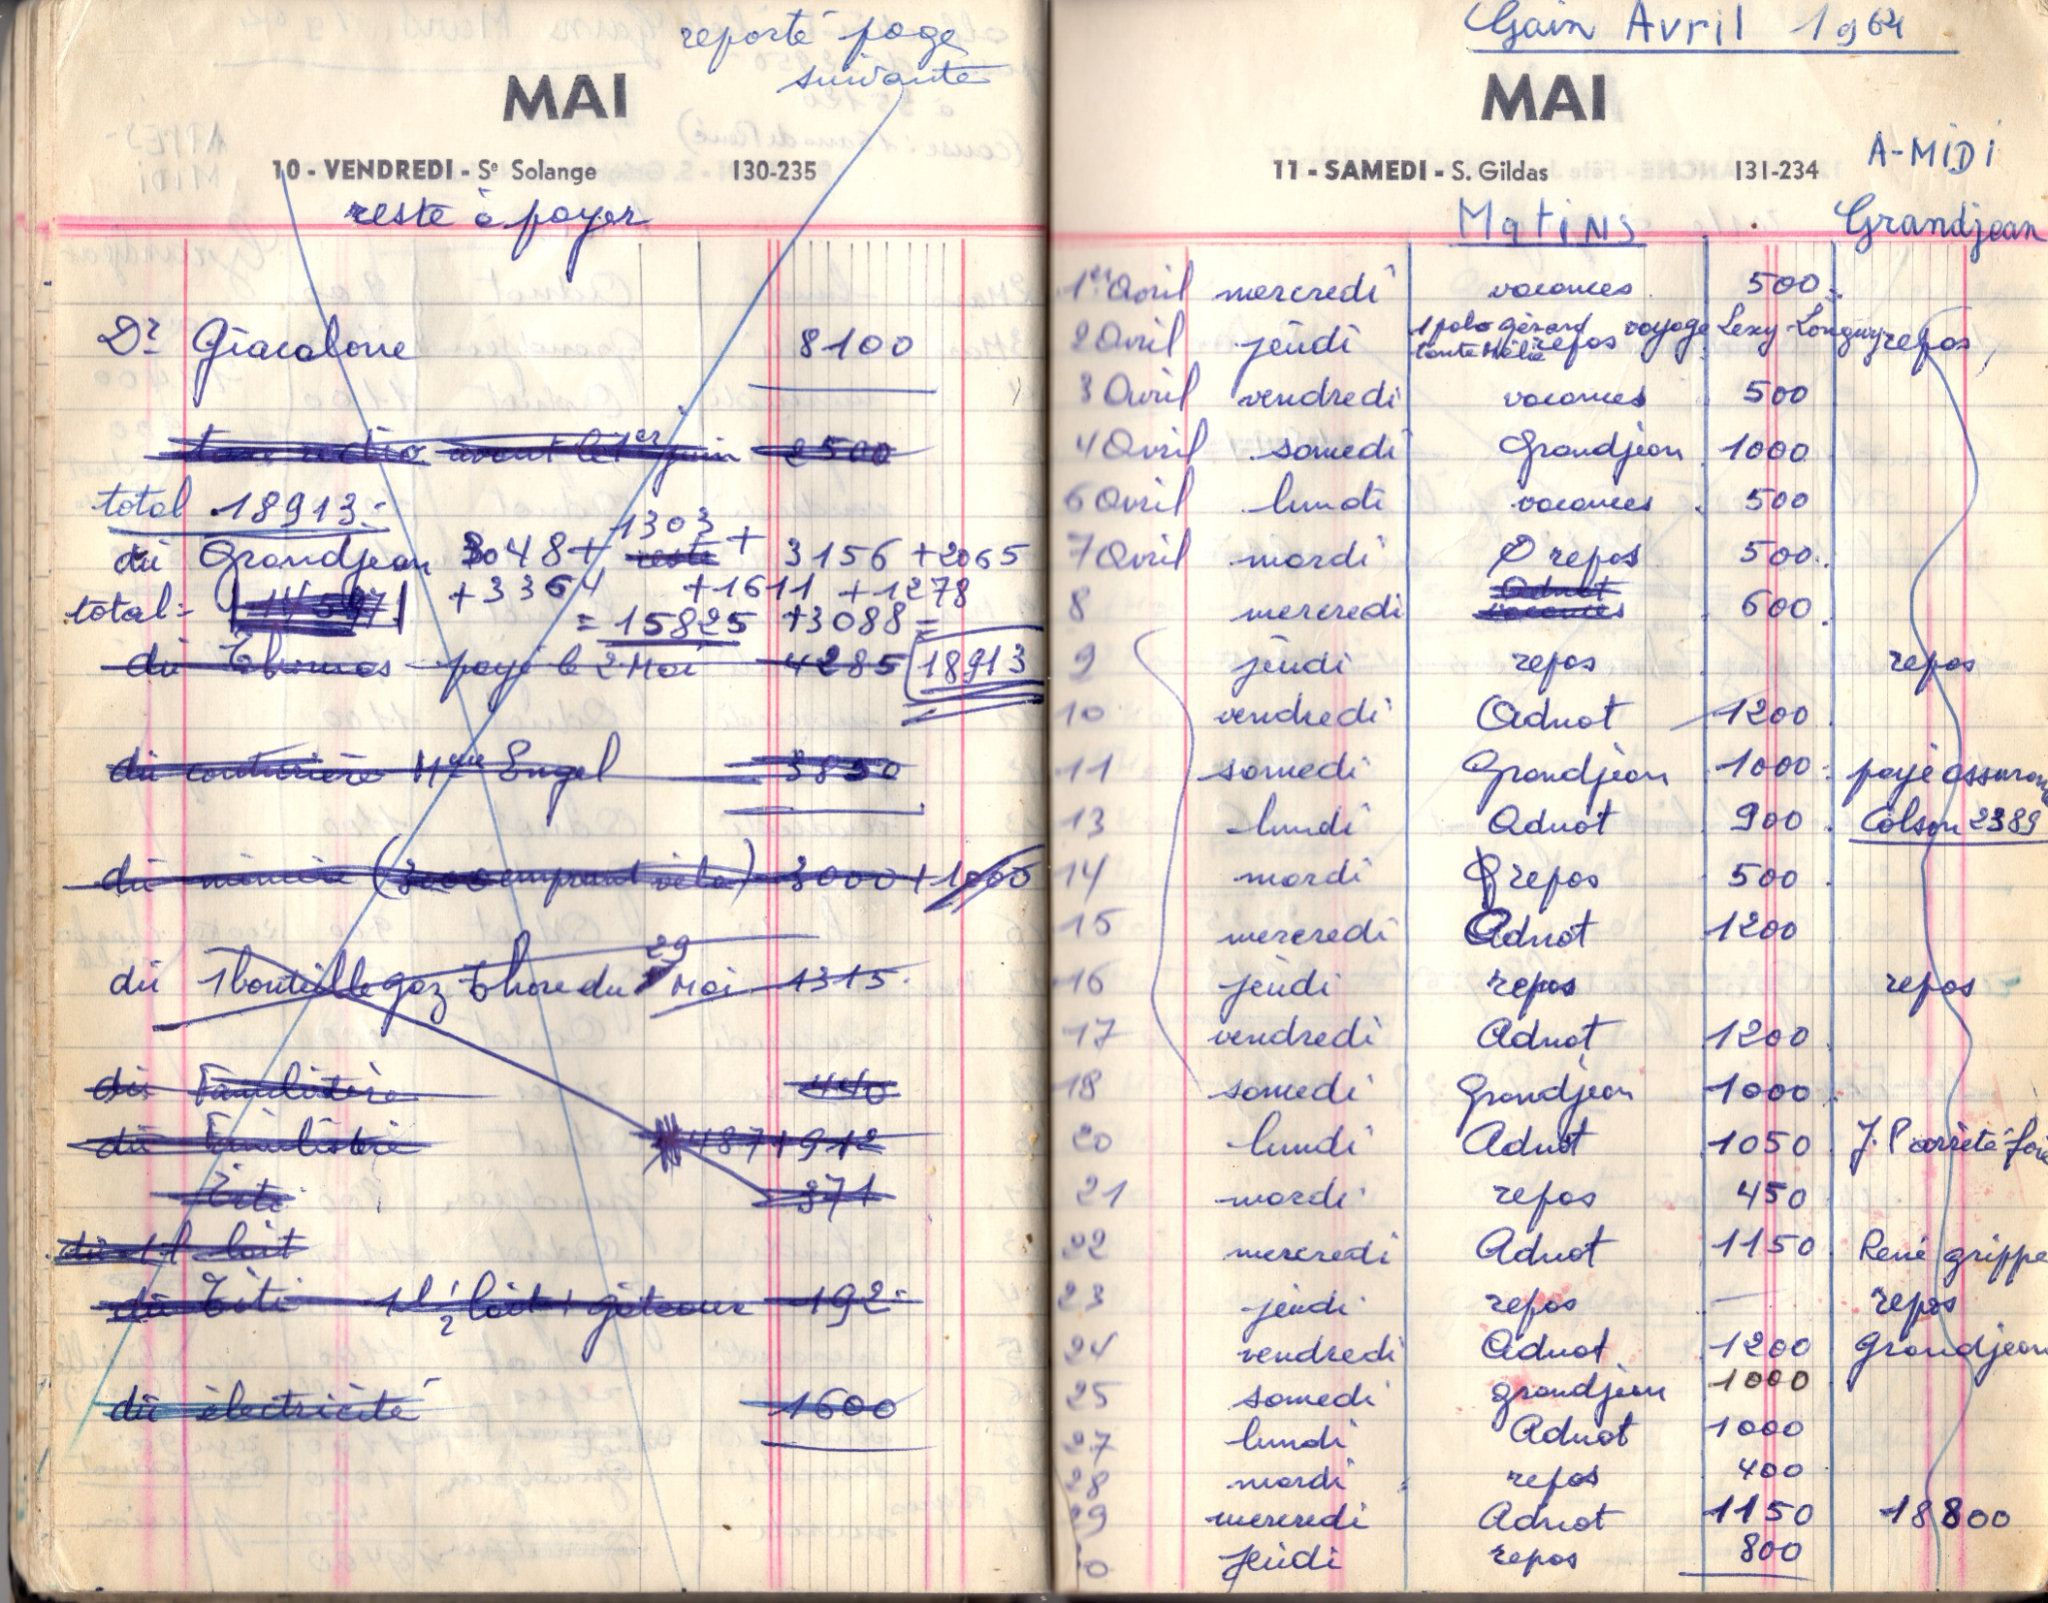 reporté page
suivante
MAI
10 - VENDREDI - Se Solange 130-235
reste à payer
Dr Giacalone 8100
avant le 1er juin 2500
total 18913=
dû Grandjean 3048 + 1303 + 3156 + 2065
+ 3364 + 1611 + 1278
total =
= 15825 + 3088 =
dû Thomas payé le 2 Mai 4285 18913
dû couturière Mme Engel 3850
dû mémère (3000 emprunt vélo) 3000 + 1000
dû 1 bouteille gaz Thore du 29 Mai 1315
dû Familistère 440
dû Familistère 487 + 912
Titi 371
dû 1 l lait
dû Titi 1 l 1/2 lait + gâteaux 192
dû électricité 1600
Gain Avril 1964
MAI
11 - SAMEDI - S. Gildas 131-234
A-MIDI
Matins Grandjean
1er Avril mercredi vacances 500
2 Avril jeudi 1 polo Gérard tante Hélia repos voyage Lexy-Longwy repos
3 Avril vendredi vacances 500
4 Avril samedi Grandjean 1000
6 Avril lundi vacances 500
7 Avril mardi repos 500
8 mercredi Adnot vacances 600
9 jeudi repos repos
10 vendredi Adnot 1200
11 samedi Grandjean 1000 payé assuran
13 lundi Adnot 900 Colson 2389
14 mardi repos 500
15 mercredi Adnot 1200
16 jeudi repos repos
17 vendredi Adnot 1200
18 samedi Grandjean 1000
20 lundi Adnot 1050 J.P arrête
21 mardi repos 450
22 mercredi Adnot 1150 René grippe
23 jeudi repos — repos
24 vendredi Adnot 1200 Grandjean
25 samedi grandjean 1000
27 lundi Adnot 1000
28 mardi repos 400
29 mercredi Adnot 1150 18800
0 jeudi repos 800